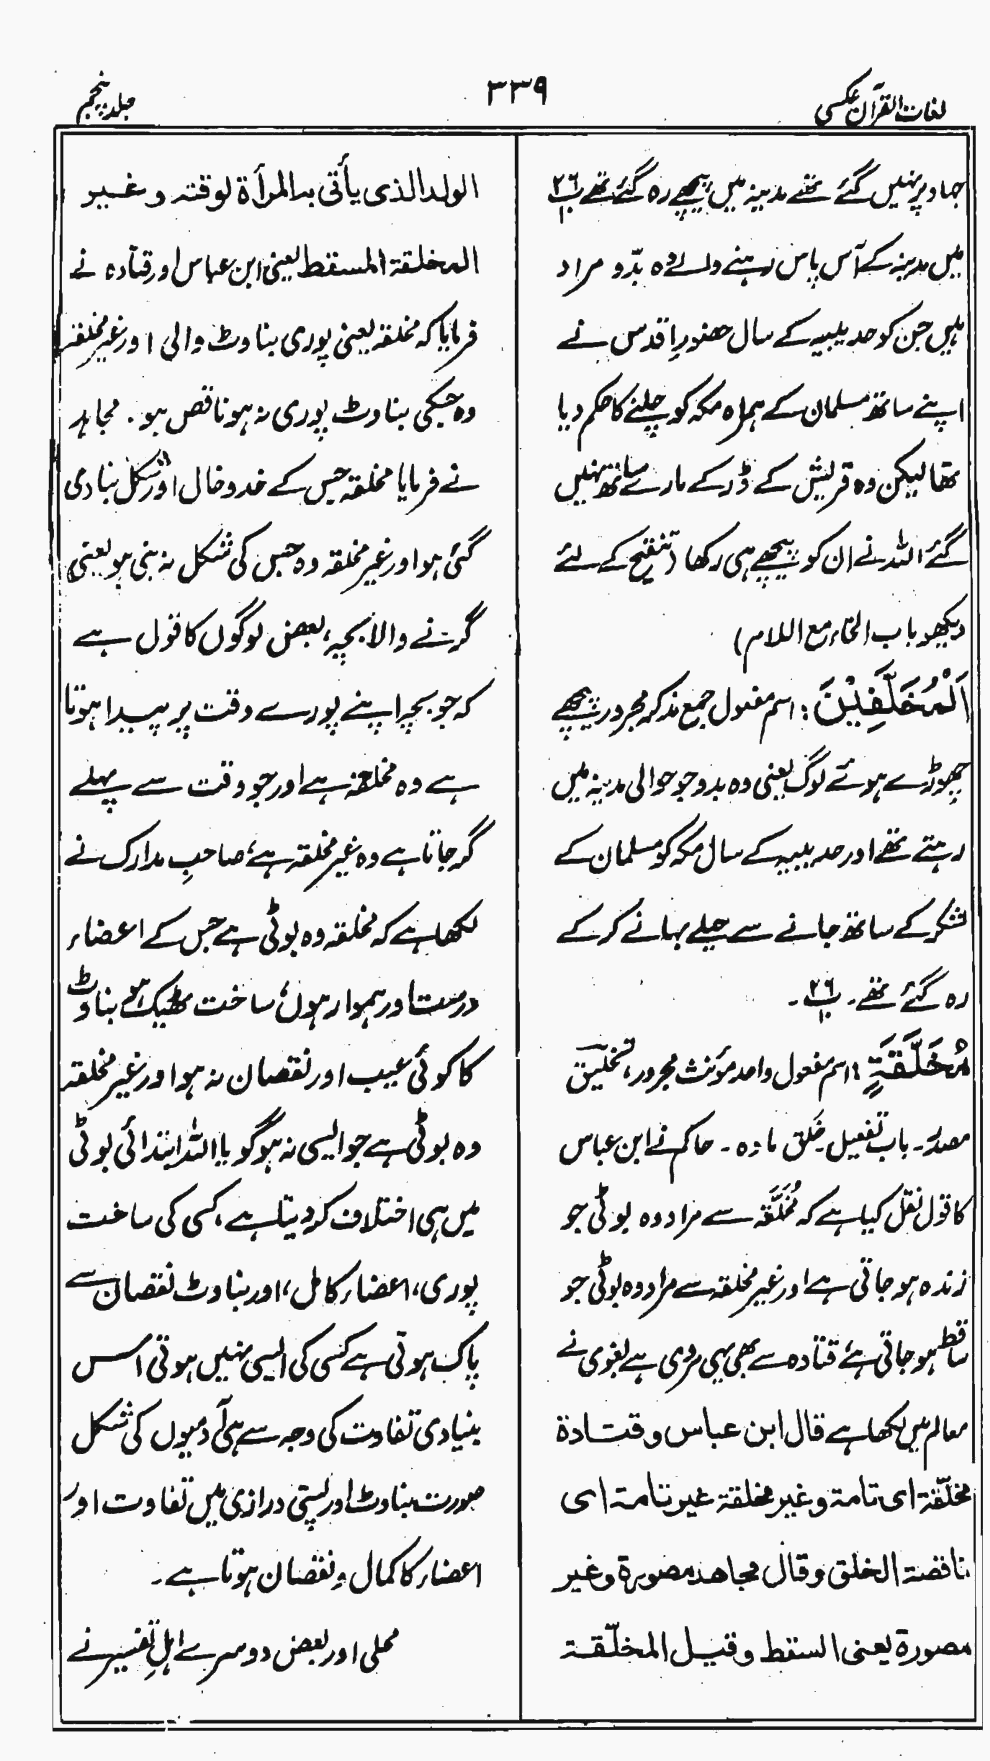 لغات القرآن عکسی
۳۳۹
جلد پنجم
جہاد پر نہیں گئے تھے مدینہ میں پیچھے رہ گئے تھے پ ۲۶
۱۰
میں مدینہ کے آس پاس رہنے والے وہ بدّو مراد
ہیں جن کو حدیبیہ کے سال حضورِ اقدس نے
اپنے ساتھ مسلمان کے ہمراہ مکہ کو چلنے کا حکم دیا
تھا لیکن وہ قریش کے ڈر کے مارے ساتھ نہیں
گئے اللہ نے ان کو پیچھے ہی رکھا (تنقیح کے لئے
دیکھو باب الخاء مع اللام)
اَلْمُخَلَّفِیْنَ : اسم مفعول جمع مذکر مجرور پیچھے
چھوڑے ہوئے لوگ یعنی وہ بدو جو حوالی مدینہ میں
رہتے تھے اور حدیبیہ کے سال مکہ کو مسلمان کے
لشکر کے ساتھ جانے سے حیلے بہانے کر کے
رہ گئے تھے۔ پ ۲۶
۱۰ ۔
مُخَلَّقَةٍ : اسم مفعول واحد مؤنث مجرور، تخلیق
مصدر۔ باب تفعیل خَلق مادہ۔ حاکم نے ابن عباس
کا قول نقل کیا ہے کہ مُخَلَّقَہ سے مراد وہ بوٹی جو
زندہ ہو جاتی ہے اور غیر مخلقہ سے مراد وہ بوٹی جو
ساقط ہو جاتی ہے قتادہ سے بھی یہی مروی ہے بغوی نے
معالم میں لکھا ہے قال ابن عباس و قتادة
مخلّقة ای تامة و غیر مخلقة غیر تامة ای
ناقصة الخلق و قال مجاهد مصورة و غیر
مصورة یعنی السقط و قیل المخلّقة
الولد الذی یأتی به المرأة لوقته و غیر
المخلقة المسقط یعنی ابن عباس اور قتادہ نے
فرمایا کہ مخلقہ یعنی پوری بناوٹ والی اور غیر مخلقہ
وہ جسکی بناوٹ پوری نہ ہو ناقص ہو۔ مجاہد
نے فرمایا مخلقہ جس کے خد و خال اور شکل بنا دی
گئی ہو اور غیر مخلقہ وہ جس کی شکل نہ بنی ہو یعنی
گرنے والا بچہ، بعض لوگوں کا قول ہے
کہ جو بچہ اپنے پورے وقت پر پیدا ہوتا
ہے وہ مخلقہ ہے اور جو وقت سے پہلے
گر جاتا ہے وہ غیر مخلقہ ہے، صاحبِ مدارک نے
لکھا ہے کہ مخلقہ وہ بوٹی ہے جس کے اعضاء
درست اور ہموار ہوں، ساخت ٹھیک ہو بناوٹ
کا کوئی عیب اور نقصان نہ ہو اور غیر مخلقہ
وہ بوٹی ہے جو ایسی نہ ہو گویا اللہ ابتدائی بوٹی
میں ہی اختلاف کر دیتا ہے، کسی کی ساخت
پوری، اعضاء کامل، اور بناوٹ نقصان سے
پاک ہوتی ہے کسی کی ایسی نہیں ہوتی اس
بنیادی تفاوت کی وجہ سے ہی آدمیوں کی شکل
صورت بناوٹ اور پستی درازی میں تفاوت اور
اعضاء کا کمال و نقصان ہوتا ہے۔
محلی اور بعض دوسرے اہلِ تفسیر نے